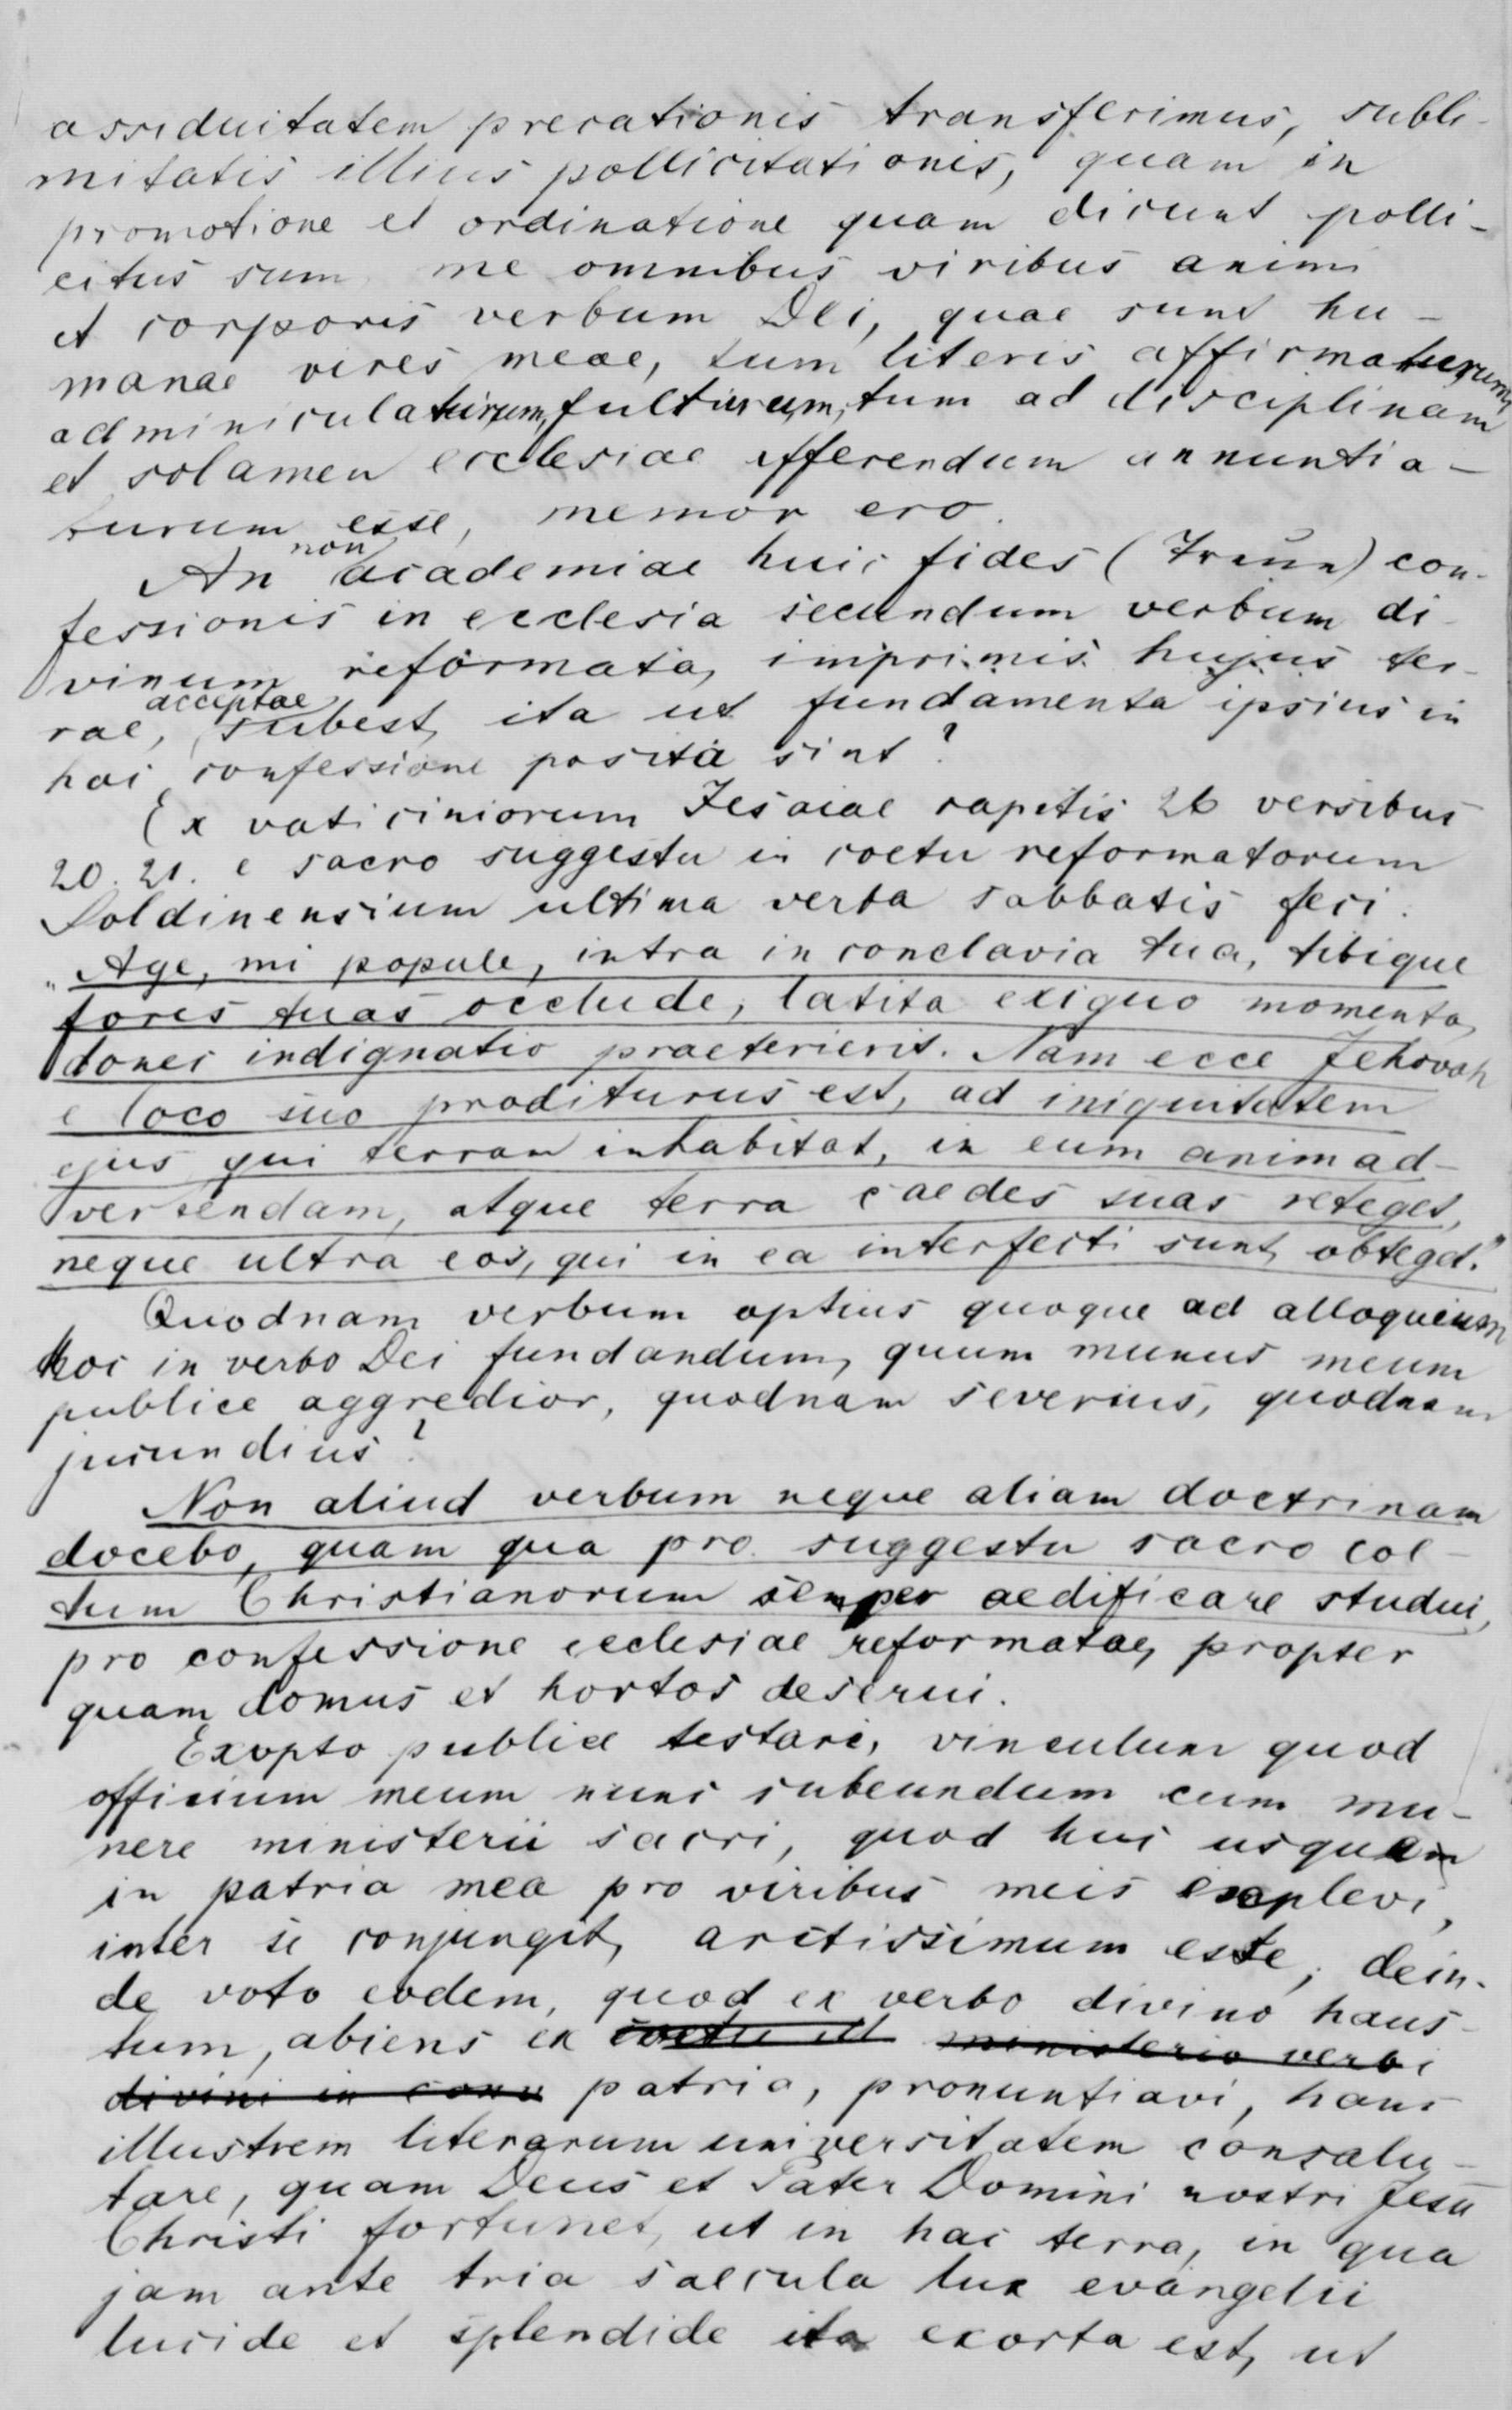 assiduitatem precationis transferimus, subli-
mitatis illius pollicitationis, quam in
promotione et ordinatione quam dicunt polli-
citus sum me omnibus viribus animi
et corporis verbum Dei, quae sunt hu-
manae vires meae, tum literis affirmaturum,
adminiculaturum, fulturum, tum ad disciplinam
et solamen ecclesiae efferendum annuntia-
turum esse, memor ero.
An non academiae huic fides (Treue) con-
fessionis in ecclesia secundum verbum di-
vinum reformata, imprimis hujus ter-
rae, acceptae subest, ita ut fundamenta ipsius in
hac confessione posita sint?
Ex vaticiniorum Jesaiae capitis 26 versibus
20. 21. e sacro suggestu in coetu reformatorum
Soldinensium ultima verba sabbatis feci:
"Age, mi popule, intra in conclavia tua, tibique
fores tuas occlude, latita exiguo momento,
donec indignatio praeterierit. Nam ecce Jehovah
e loco suo proditurus est, ad iniquitatem
ejus qui terram inhabitat, in eum animad-
vertendam, atque terra caedes suas reteget,
neque ultra eos, qui in ea interfecti sunt, obteget."
Quodnam verbum aptius quoque ad alloquium
hoc in verbo Dei fundandum, quum munus meum
publice aggredior, quodnam severius, quodnam
jucundius?
Non aliud verbum neque aliam doctrinam
docebo, quam qua pro suggestu sacro coe-
tum Christianorum semper aedificare studui,
pro confessione ecclesiae reformatae, propter
quam domus et hortos deserui.
Exopto publice testari, vinculum quod
officium meum nunc subeundum cum mu-
nere ministerii sacri, quod huc usquam
in patria mea pro viribus meis explevi,
inter se conjungit, arctissimum esse, dein-
de voto eodem, quod ex verbo divino haus-
tum, abiens ex coetu et ministerio verbi
divini in conu patria, pronuntiavi, hanc
illustrem literarum universitatem consalu-
tare, quam Deus et Pater Domini nostri Jesu
Christi fortunet, ut in hac terra, in qua
jam ante tria saecula lux evangelii
lucide et splendide ita exorta est, ut